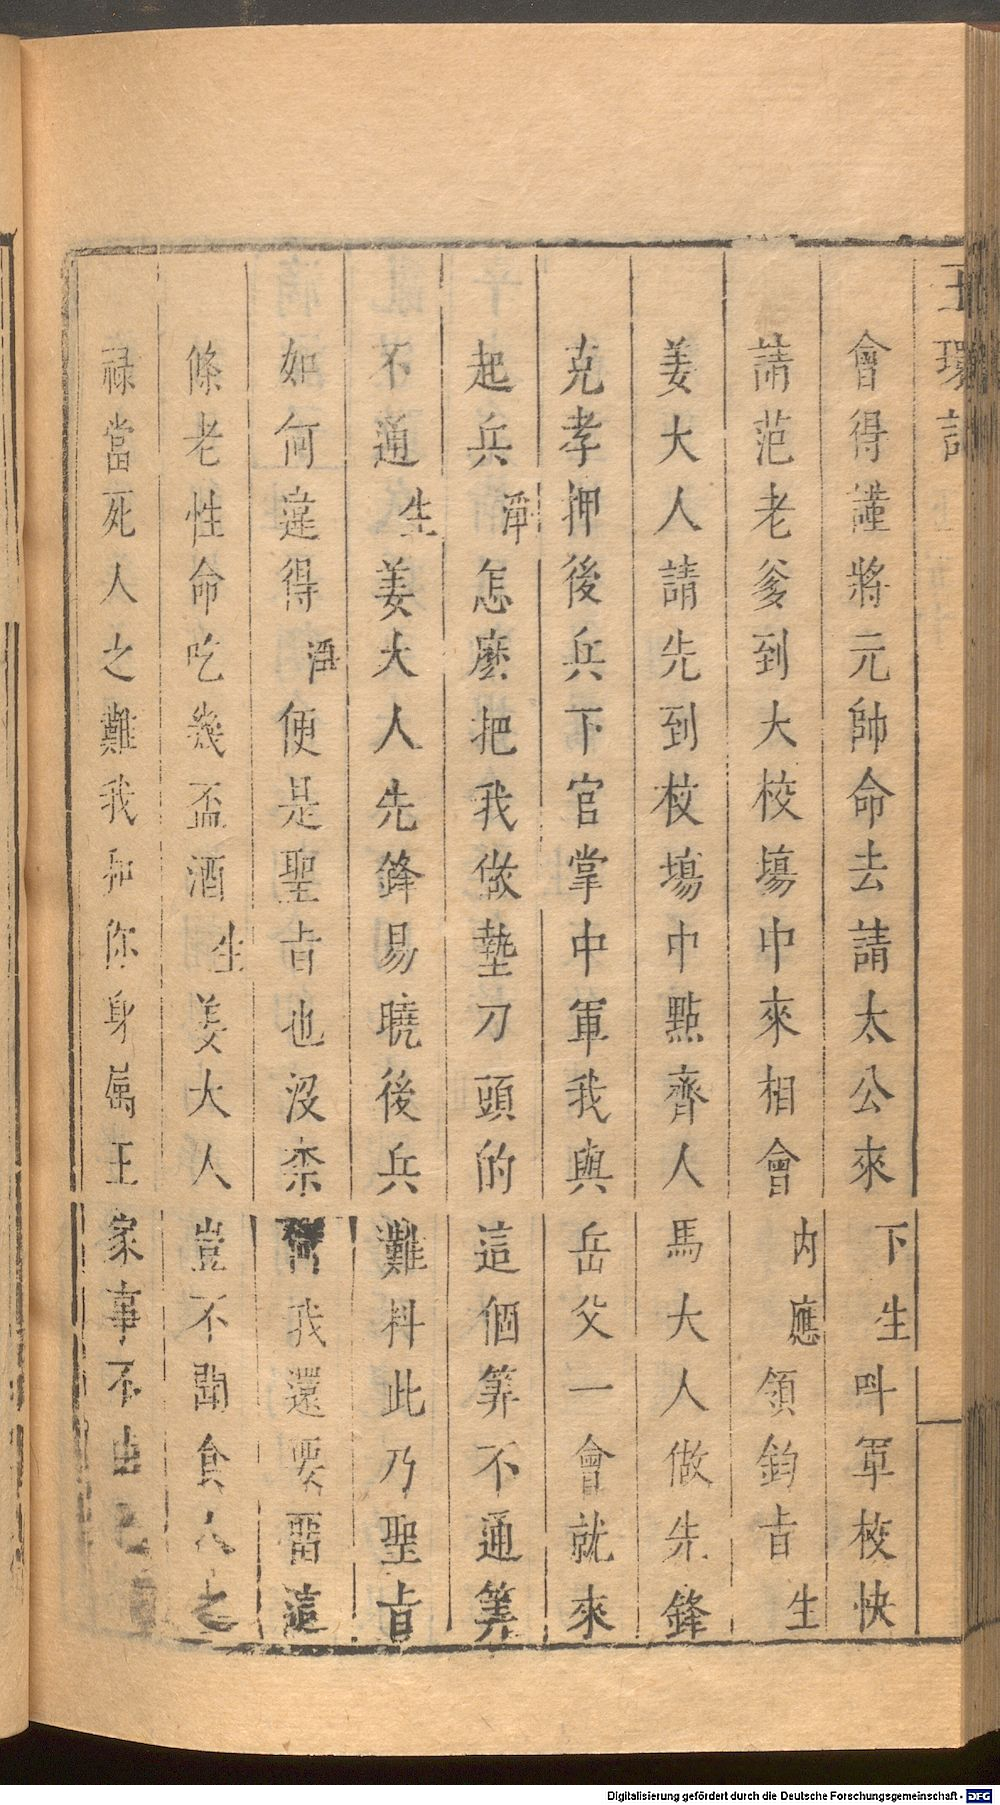 玉環記
會得謹將元帥命去請太公來下生呌軍校快
請范老爹到大校場中來相會內應領鈞旨生
姜大人請先到校場中點齊人馬大人做先鋒
克孝押後兵下官掌中軍我與岳父一會就來
起兵淨怎麽把我做墊刀頭的這個筭不通筭
不通生姜大人先鋒易曉後兵難料此乃聖旨
如何違得淨便是聖旨也沒柰何我還要畱這
條老性命吃幾盃酒生姜大人豈不聞食人之
祿當死人之難我和你身屬王家事不由己
Digitalisierung gefördert durch die Deutsche Forschungsgemeinschaft - DFG